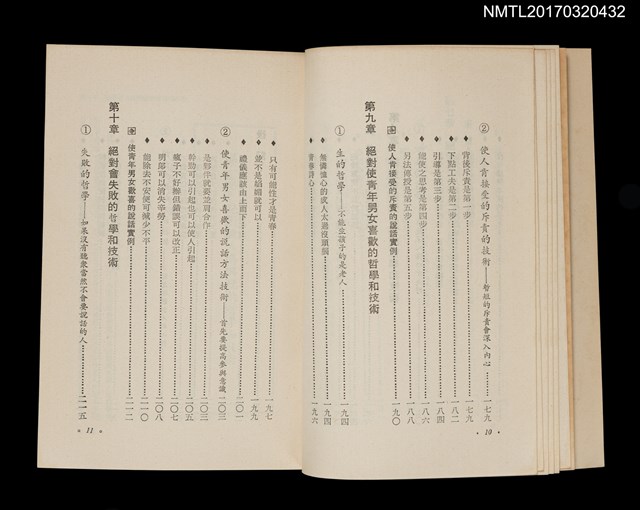 NMTL20170320432
② 使人肯接受的斥責的技術——暫短的斥責會深入內心……一七九
◆ 背後斥責是第一步……一七九
◆ 下點工夫是第二步……一八二
◆ 引導是第三步……一八四
◆ 能使之思考是第四步……一八六
◆ 另法傳授是第五步……一八八
使人肯接受的斥責的說話實例……一九〇
第九章 絕對使青年男女喜歡的哲學和技術
① 生的哲學——不能立孩子的是老人……一九四
的成人太過沒頭個……一九四
……一九六
· 10 ·
◆ 只有可能性才是青春……一九七
◆ 並不是嘮叨就可以……一九九
◆ 禮儀應該由上而下……二〇一
② 使青年男女喜歡的說話方法技術——首先要提高參與意識……二〇三
◆ 是夥伴就要並肩合作……二〇三
◆ 幹勁可以引起也可以使人引起……二〇五
◆ 瘋子不好辦但錯誤可以改正……二〇七
◆ 勇部可以消失辛勞……二〇八
◆ 能除去不安便可減少不平……二一〇
使青年男女歡喜的說話實例……二一二
第十章 絕對會失敗的哲學和技術
① 失敗的哲學——如果沒有聽衆當然不會要說話的人……二一五
· 11 ·